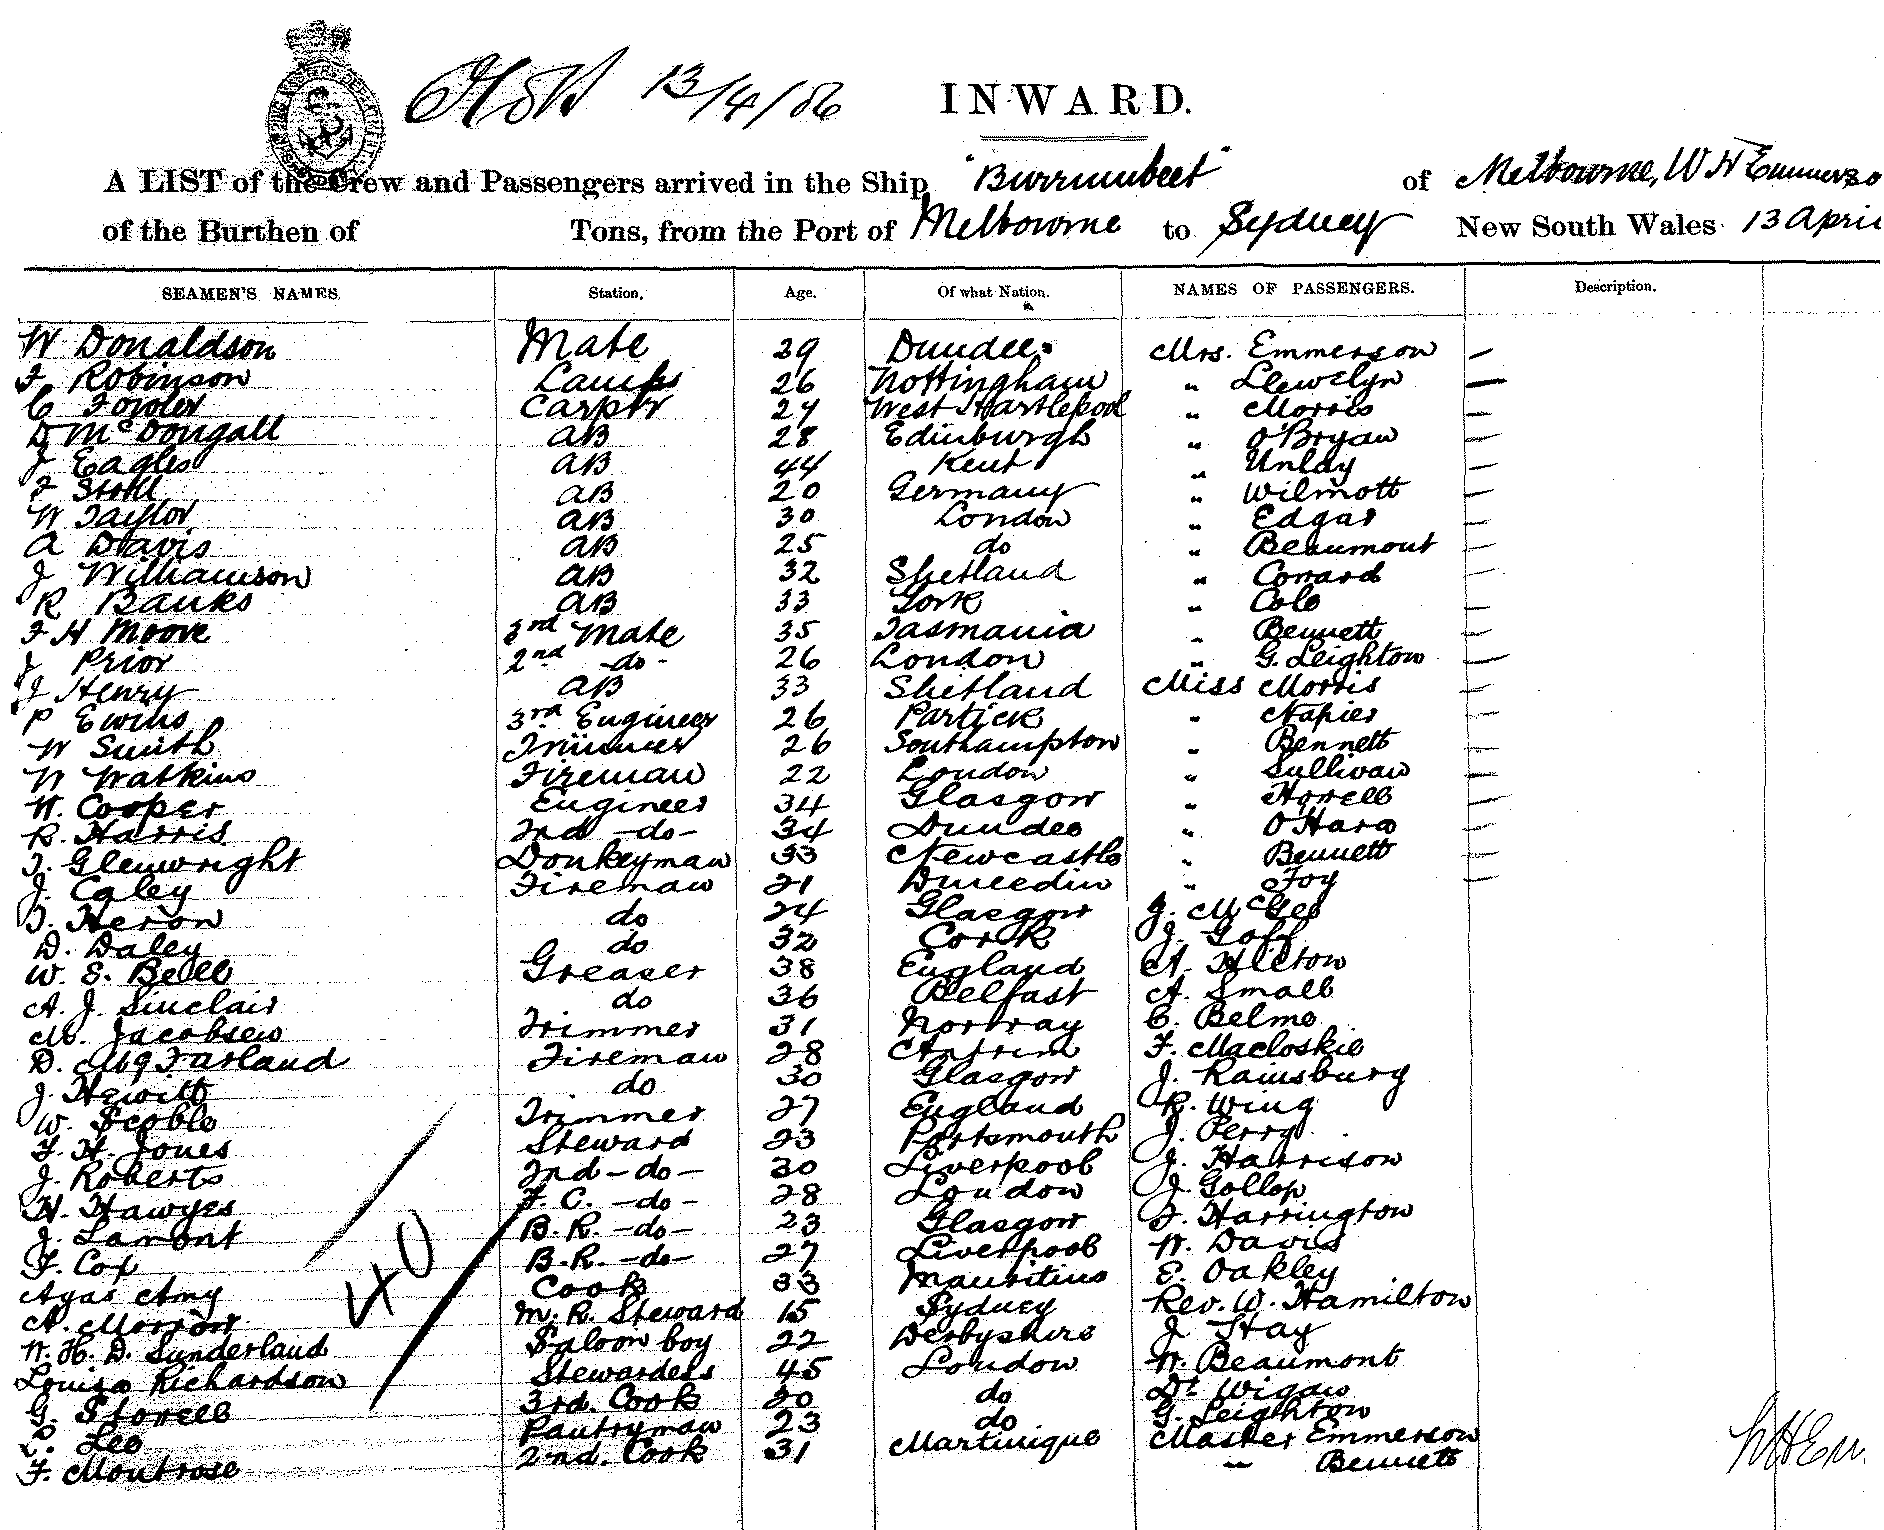 13/4/86 INWARD.
A LIST of the Crew and Passengers arrived in the Ship "Burrumbeet" of Melbourne, W H Emmerso
of the Burthen of Tons, from the Port of Melbourne to Sydney New South Wales 13 April
SEAMEN'S NAMES. Station. Age. Of what Nation. NAMES OF PASSENGERS. Description.
W Donaldson Mate 29 Dundee Mrs. Emmerson —
F Robinson Lamps 26 Nottingham " Llewelyn —
C Fowler Carptr 27 West Hartlepool " Morris —
D McDougall AB 28 Edinburgh " O'Bryan —
J Eagles AB 44 Kent " Unlay —
F Stoll AB 20 Germany " Wilmott —
W Taylor AB 30 London " Edgar —
A Davis AB 25 do " Beaumont —
J Williamson AB 32 Shetland " Coward —
R Banks AB 33 York " Cole —
F H Moore 3rd Mate 35 Tasmania " Bennett —
J Prior 2nd -do- 26 London " G. Leighton —
J Henry AB 33 Shetland Miss Morris —
P Ewins 3rd Engineer 26 Partick " Napier —
W Smith Trimmer 26 Southampton " Bennett —
W Watkins Fireman 22 London " Sullivan —
W. Cooper Engineer 34 Glasgow " Howell —
R. Harris 2nd -do- 34 Dundee " O'Hara —
T. Glenwright Donkeyman 33 Newcastle " Bennett —
J. Caley Fireman 21 Dunedin " Foy —
T. Heron do 24 Glasgow J. McGee
D. Daley do 32 Cork J. Goff
W. S. Bell Greaser 38 England A. Hilton
A. J. Sinclair do 36 Belfast A. Small
M. Jacobsen Trimmer 31 Norway C. Belmo
D. McFarland Fireman 28 Antrim F. Macloskie
J. Hewitt do 30 Glasgow J. Rainsbury
W. Scoble Trimmer 27 England R. Wing
F. H. Jones Steward 23 Portsmouth J. Perry
J. Roberts 2nd -do- 30 Liverpool J. Harrison
H. Hawyes F. C. -do- 28 London J. Gollop
J. Lamont B. R. -do- 23 Glasgow F. Harrington
F. Cox B. R. -do- 27 Liverpool W. Davis
Ayas Amy Cook 33 Mauritius E. Oakley
A. Morrow M. R. Steward 15 Sydney Rev. W. Hamilton
W. H. D. Sunderland Saloon boy 22 Derbyshire J Hay
Louisa Richardson Stewardess 45 London W. Beaumont
G. Storell 3rd. Cook 20 do Dr Wigan
Leo Pantryman 23 do G. Leighton
F. Montrose 2nd. Cook 31 Martinique Master Emmerson
" Bennett
40
W H Em.